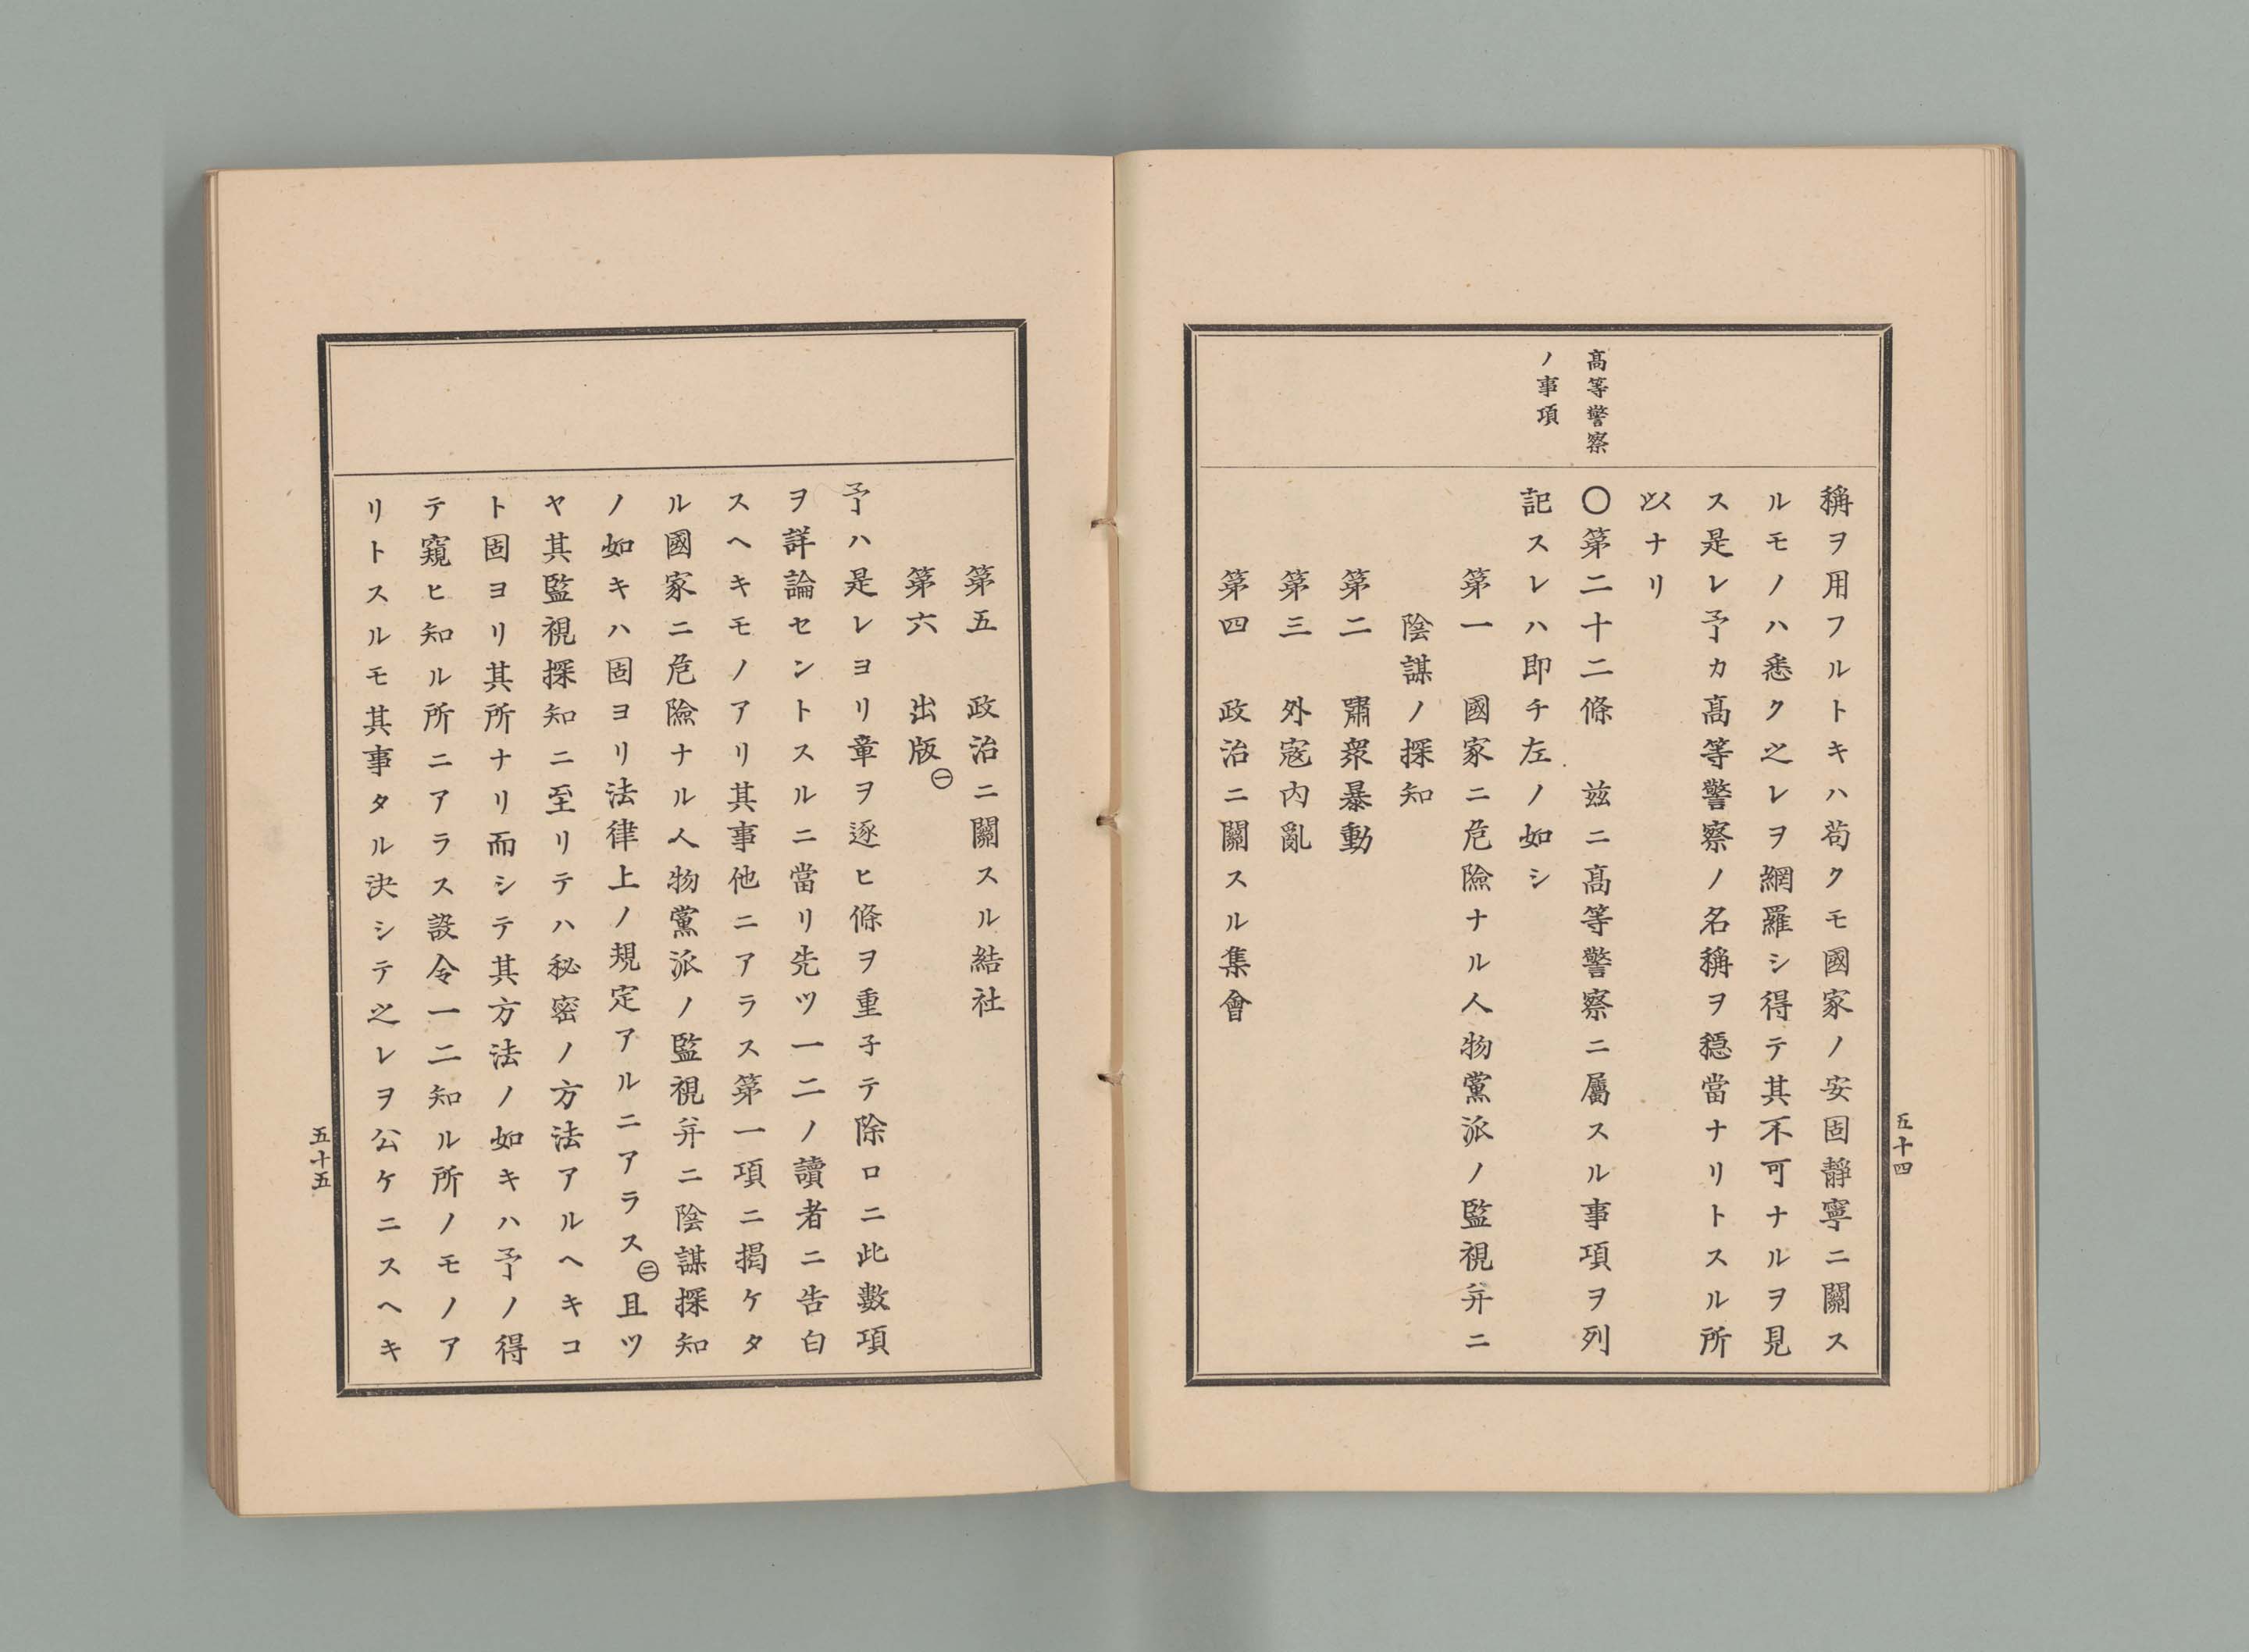 高等警察
ノ事項
稱ヲ用フルトキハ苟クモ國家ノ安固靜寧ニ關ス
ルモノハ悉ク之レヲ網羅シ得テ其不可ナルヲ見
ス是レ予カ高等警察ノ名稱ヲ穩當ナリトスル所
以ナリ
〇第二十二條　茲ニ高等警察ニ屬スル事項ヲ列
記スレハ即チ左ノ如シ
第一　國家ニ危險ナル人物黨派ノ監視幷ニ
陰謀ノ探知
第二　嘯衆暴動
第三　外寇內亂
第四　政治ニ關スル集會
五十四
第五　政治ニ關スル結社
第六　出版㊀
予ハ是レヨリ章ヲ逐ヒ條ヲ重子テ除ロニ此數項
ヲ詳論セントスルニ當リ先ツ一二ノ讀者ニ告白
スヘキモノアリ其事他ニアラス第一項ニ揭ケタ
ル國家ニ危險ナル人物黨派ノ監視幷ニ陰謀探知
ノ如キハ固ヨリ法律上ノ規定アルニアラス㊁且ツ
ヤ其監視探知ニ至リテハ秘密ノ方法アルヘキコ
ト固ヨリ其所ナリ而シテ其方法ノ如キハ予ノ得
テ窺ヒ知ル所ニアラス設令一二知ル所ノモノア
リトスルモ其事タル決シテ之レヲ公ケニスヘキ
五十五